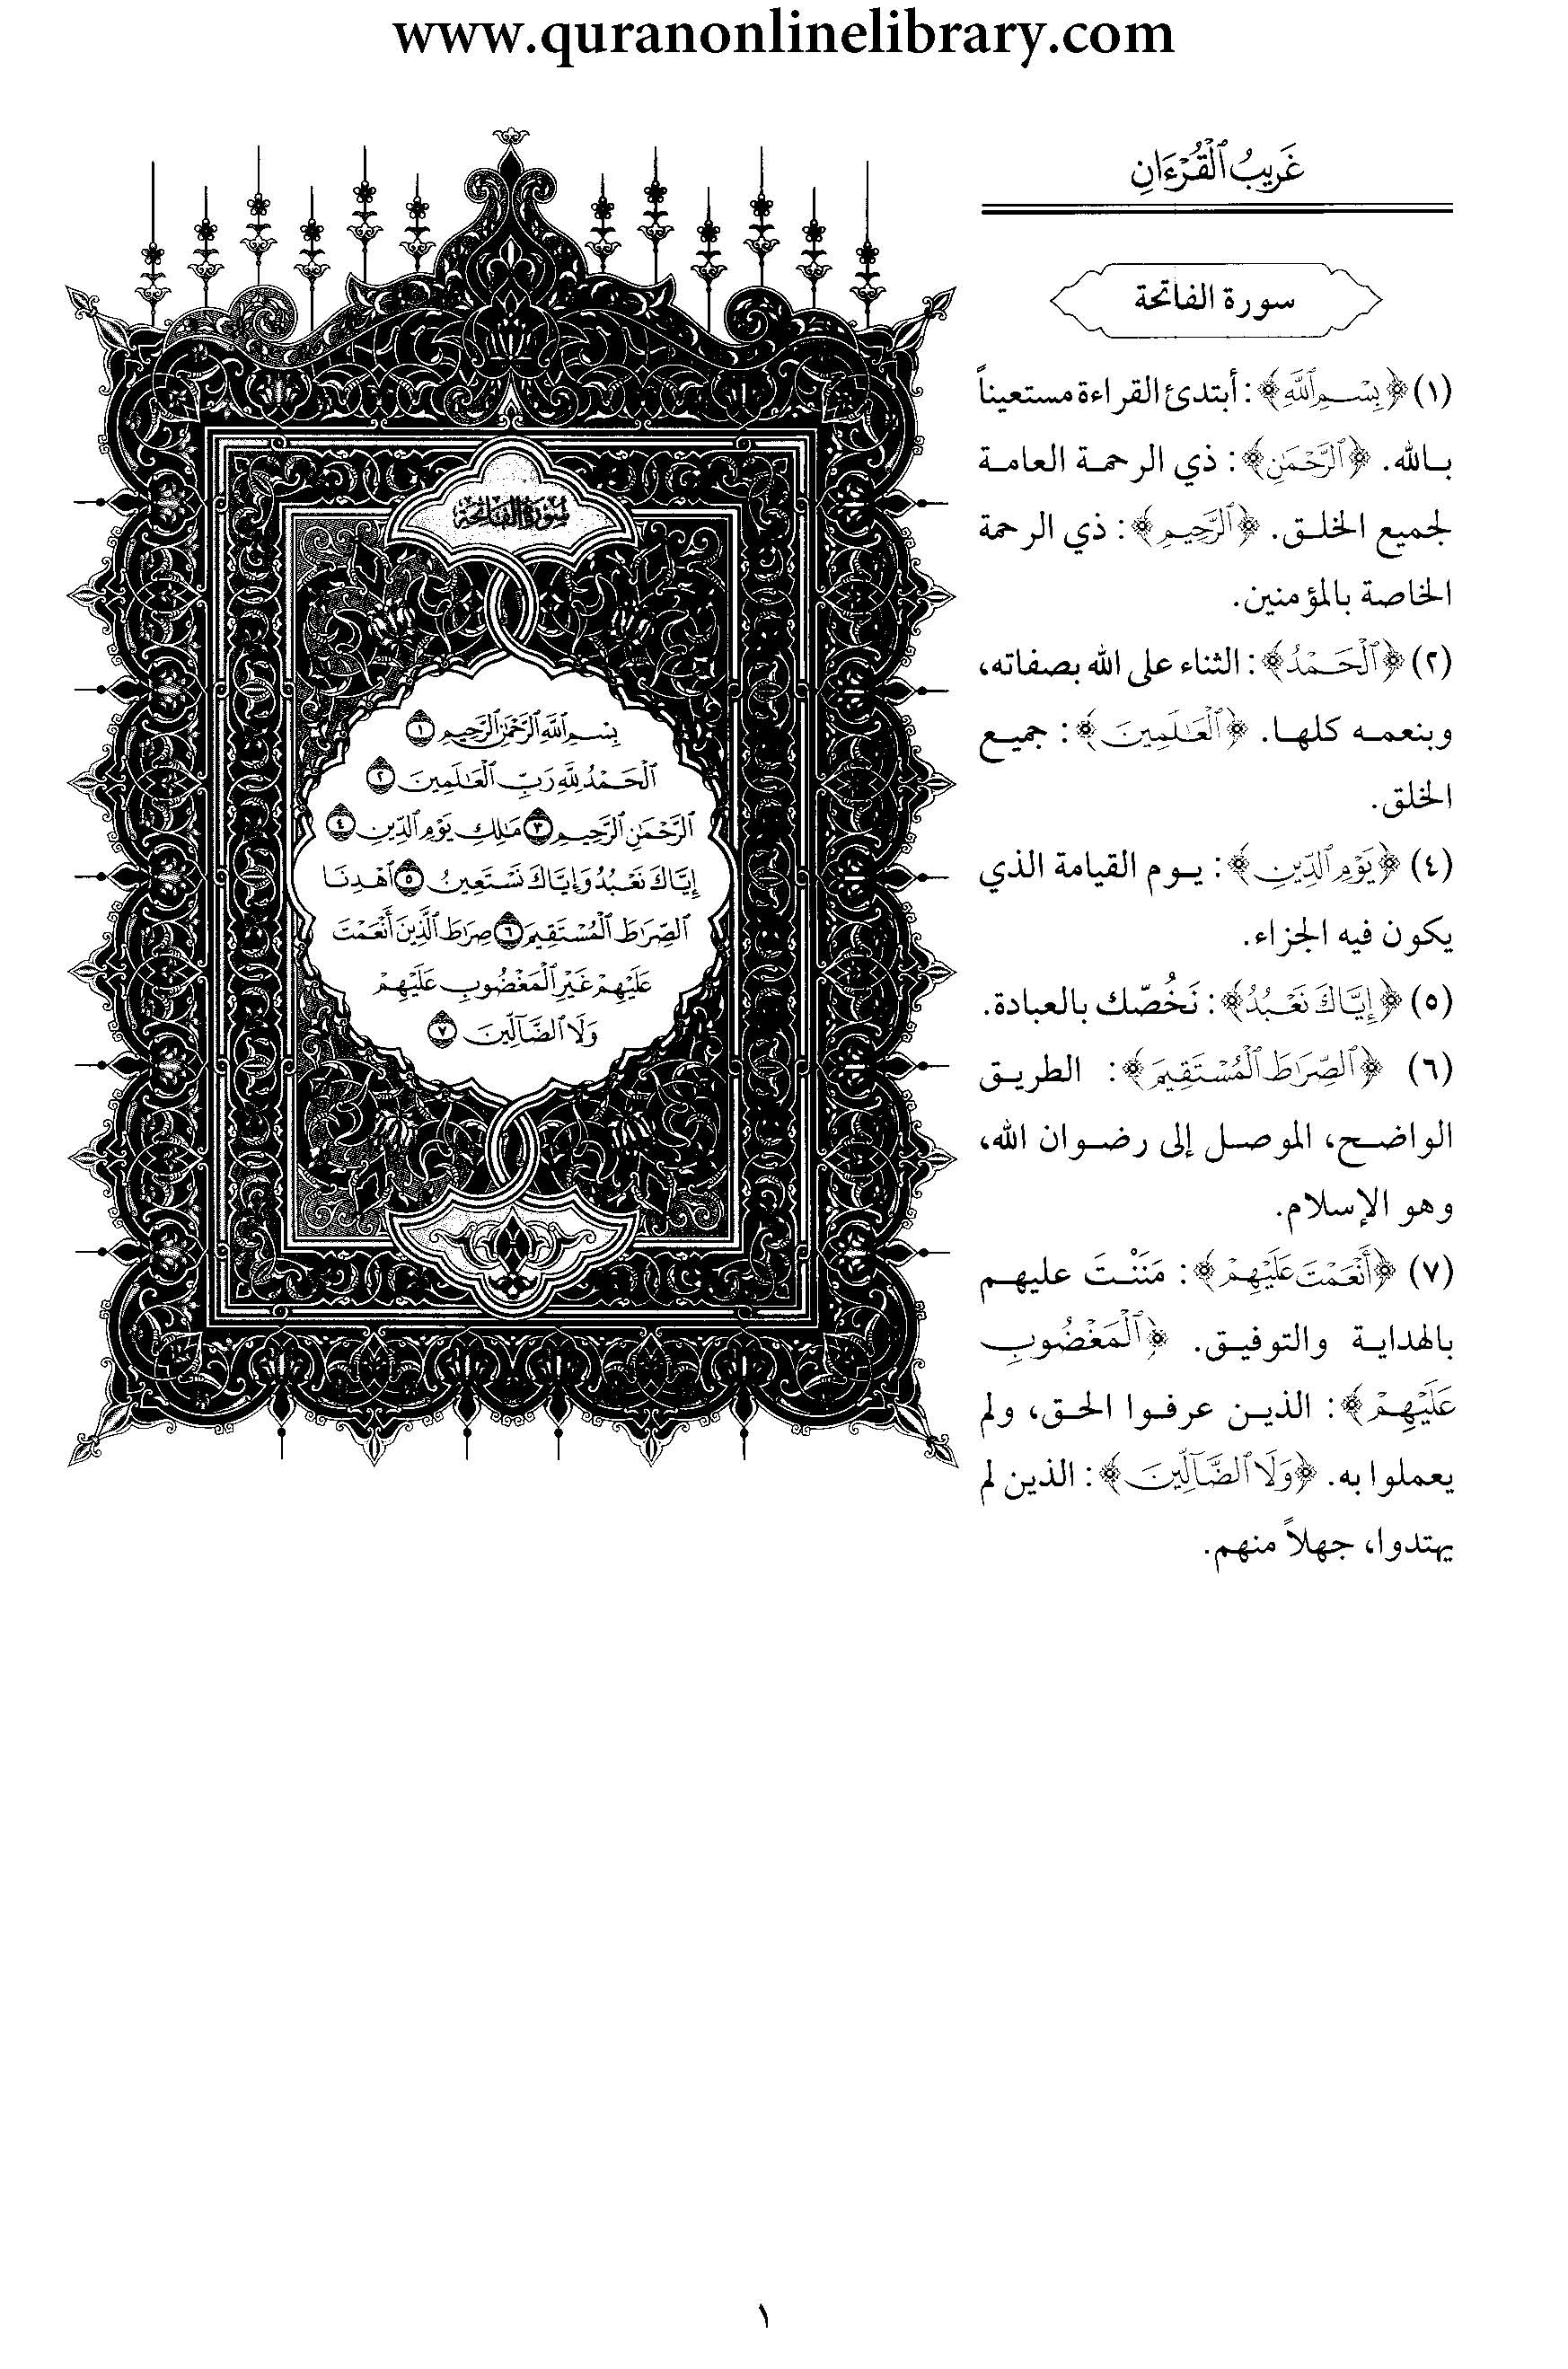 www.quranonlinelibrary.com
غَرِيبُ ٱلْقُرْءَانِ
سورة الفاتحة
(١) ﴿بِسْمِ ٱللَّهِ﴾: أبتدئ القراءة مستعيناً
بالله. ﴿ٱلرَّحْمَٰنِ﴾: ذي الرحمة العامة
لجميع الخلق. ﴿ٱلرَّحِيمِ﴾: ذي الرحمة
الخاصة بالمؤمنين.
(٢) ﴿ٱلْحَمْدُ﴾: الثناء على الله بصفاته،
وبنعمه كلها. ﴿ٱلْعَٰلَمِينَ﴾: جميع
الخلق.
(٤) ﴿يَوْمِ ٱلدِّينِ﴾: يوم القيامة الذي
يكون فيه الجزاء.
(٥) ﴿إِيَّاكَ نَعْبُدُ﴾: نَخُصّك بالعبادة.
(٦) ﴿ٱلصِّرَٰطَ ٱلْمُسْتَقِيمَ﴾: الطريق
الواضح، الموصل إلى رضوان الله،
وهو الإسلام.
(٧) ﴿أَنْعَمْتَ عَلَيْهِمْ﴾: مَنَنْتَ عليهم
بالهداية والتوفيق. ﴿ٱلْمَغْضُوبِ
عَلَيْهِمْ﴾: الذين عرفوا الحق، ولم
يعملوا به. ﴿وَلَا ٱلضَّآلِّينَ﴾: الذين لم
يهتدوا، جهلاً منهم.
سُورَةُ الفَاتِحَةِ
بِسْمِ ٱللَّهِ ٱلرَّحْمَٰنِ ٱلرَّحِيمِ ١
ٱلْحَمْدُ لِلَّهِ رَبِّ ٱلْعَٰلَمِينَ ٢
ٱلرَّحْمَٰنِ ٱلرَّحِيمِ ٣ مَٰلِكِ يَوْمِ ٱلدِّينِ ٤
إِيَّاكَ نَعْبُدُ وَإِيَّاكَ نَسْتَعِينُ ٥ ٱهْدِنَا
ٱلصِّرَٰطَ ٱلْمُسْتَقِيمَ ٦ صِرَٰطَ ٱلَّذِينَ أَنْعَمْتَ
عَلَيْهِمْ غَيْرِ ٱلْمَغْضُوبِ عَلَيْهِمْ
وَلَا ٱلضَّآلِّينَ ٧
١